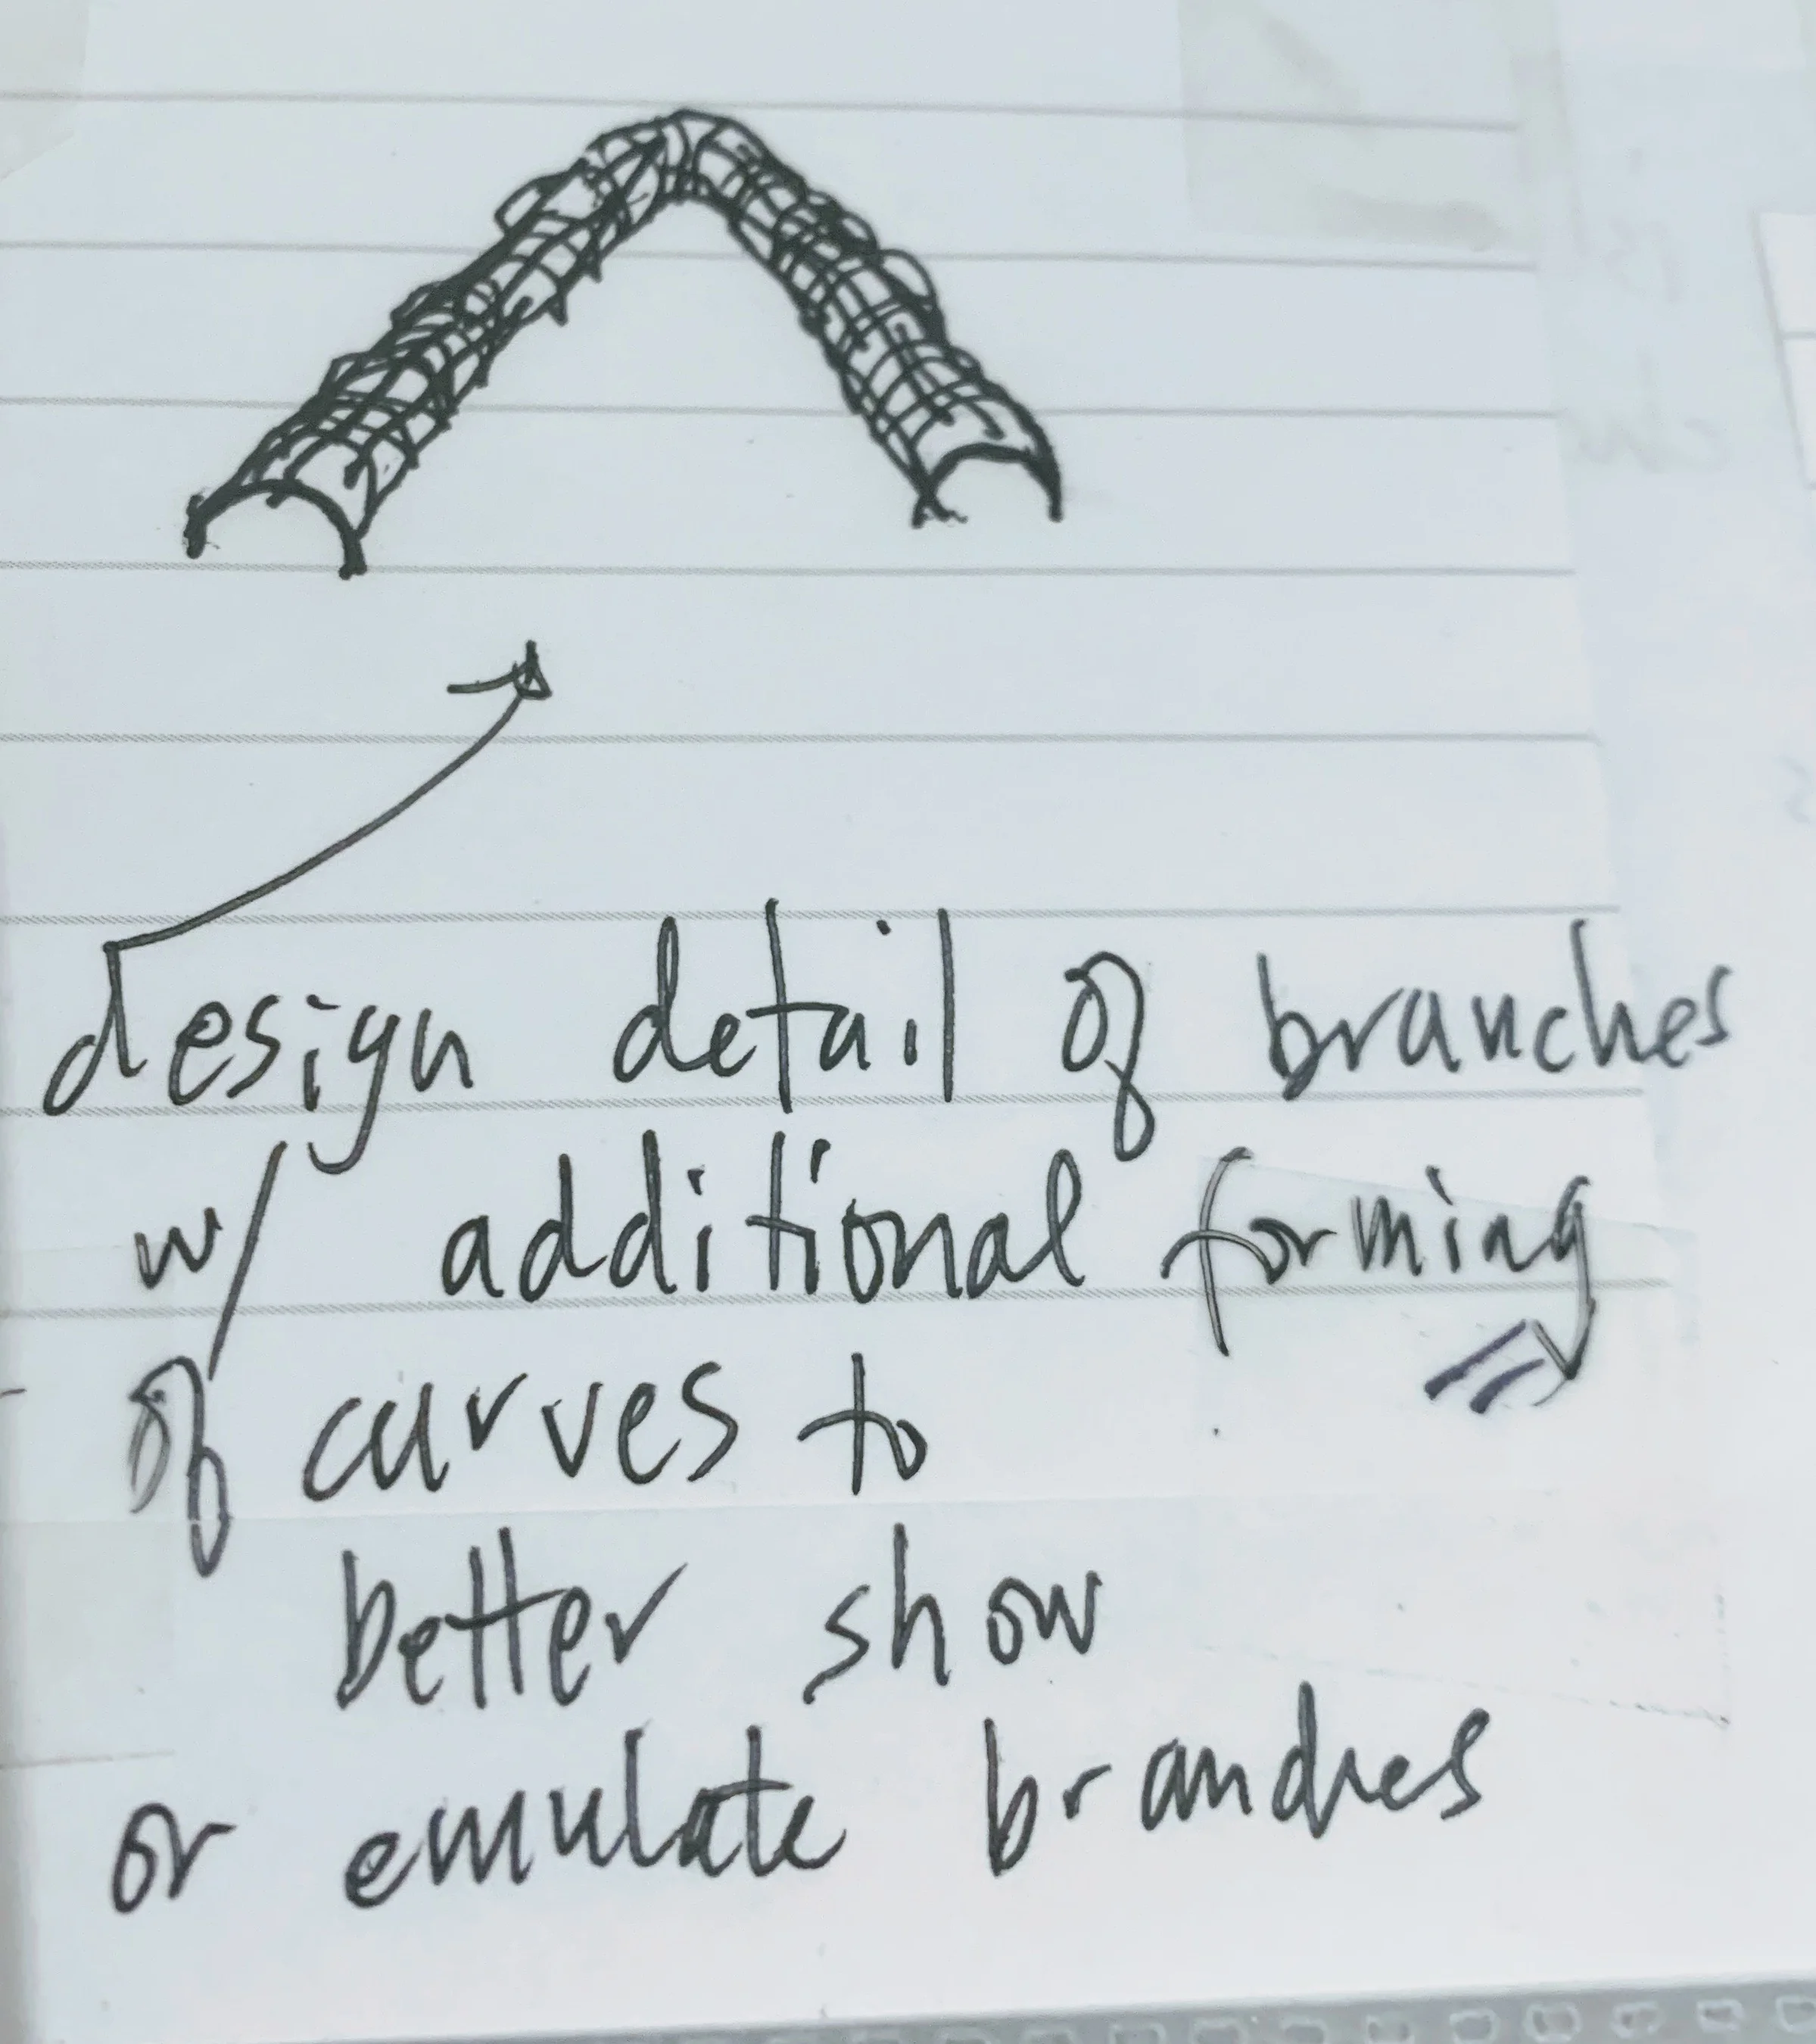 design detail of branches
w/ additional forming
of curves to
better show
or emulate branches